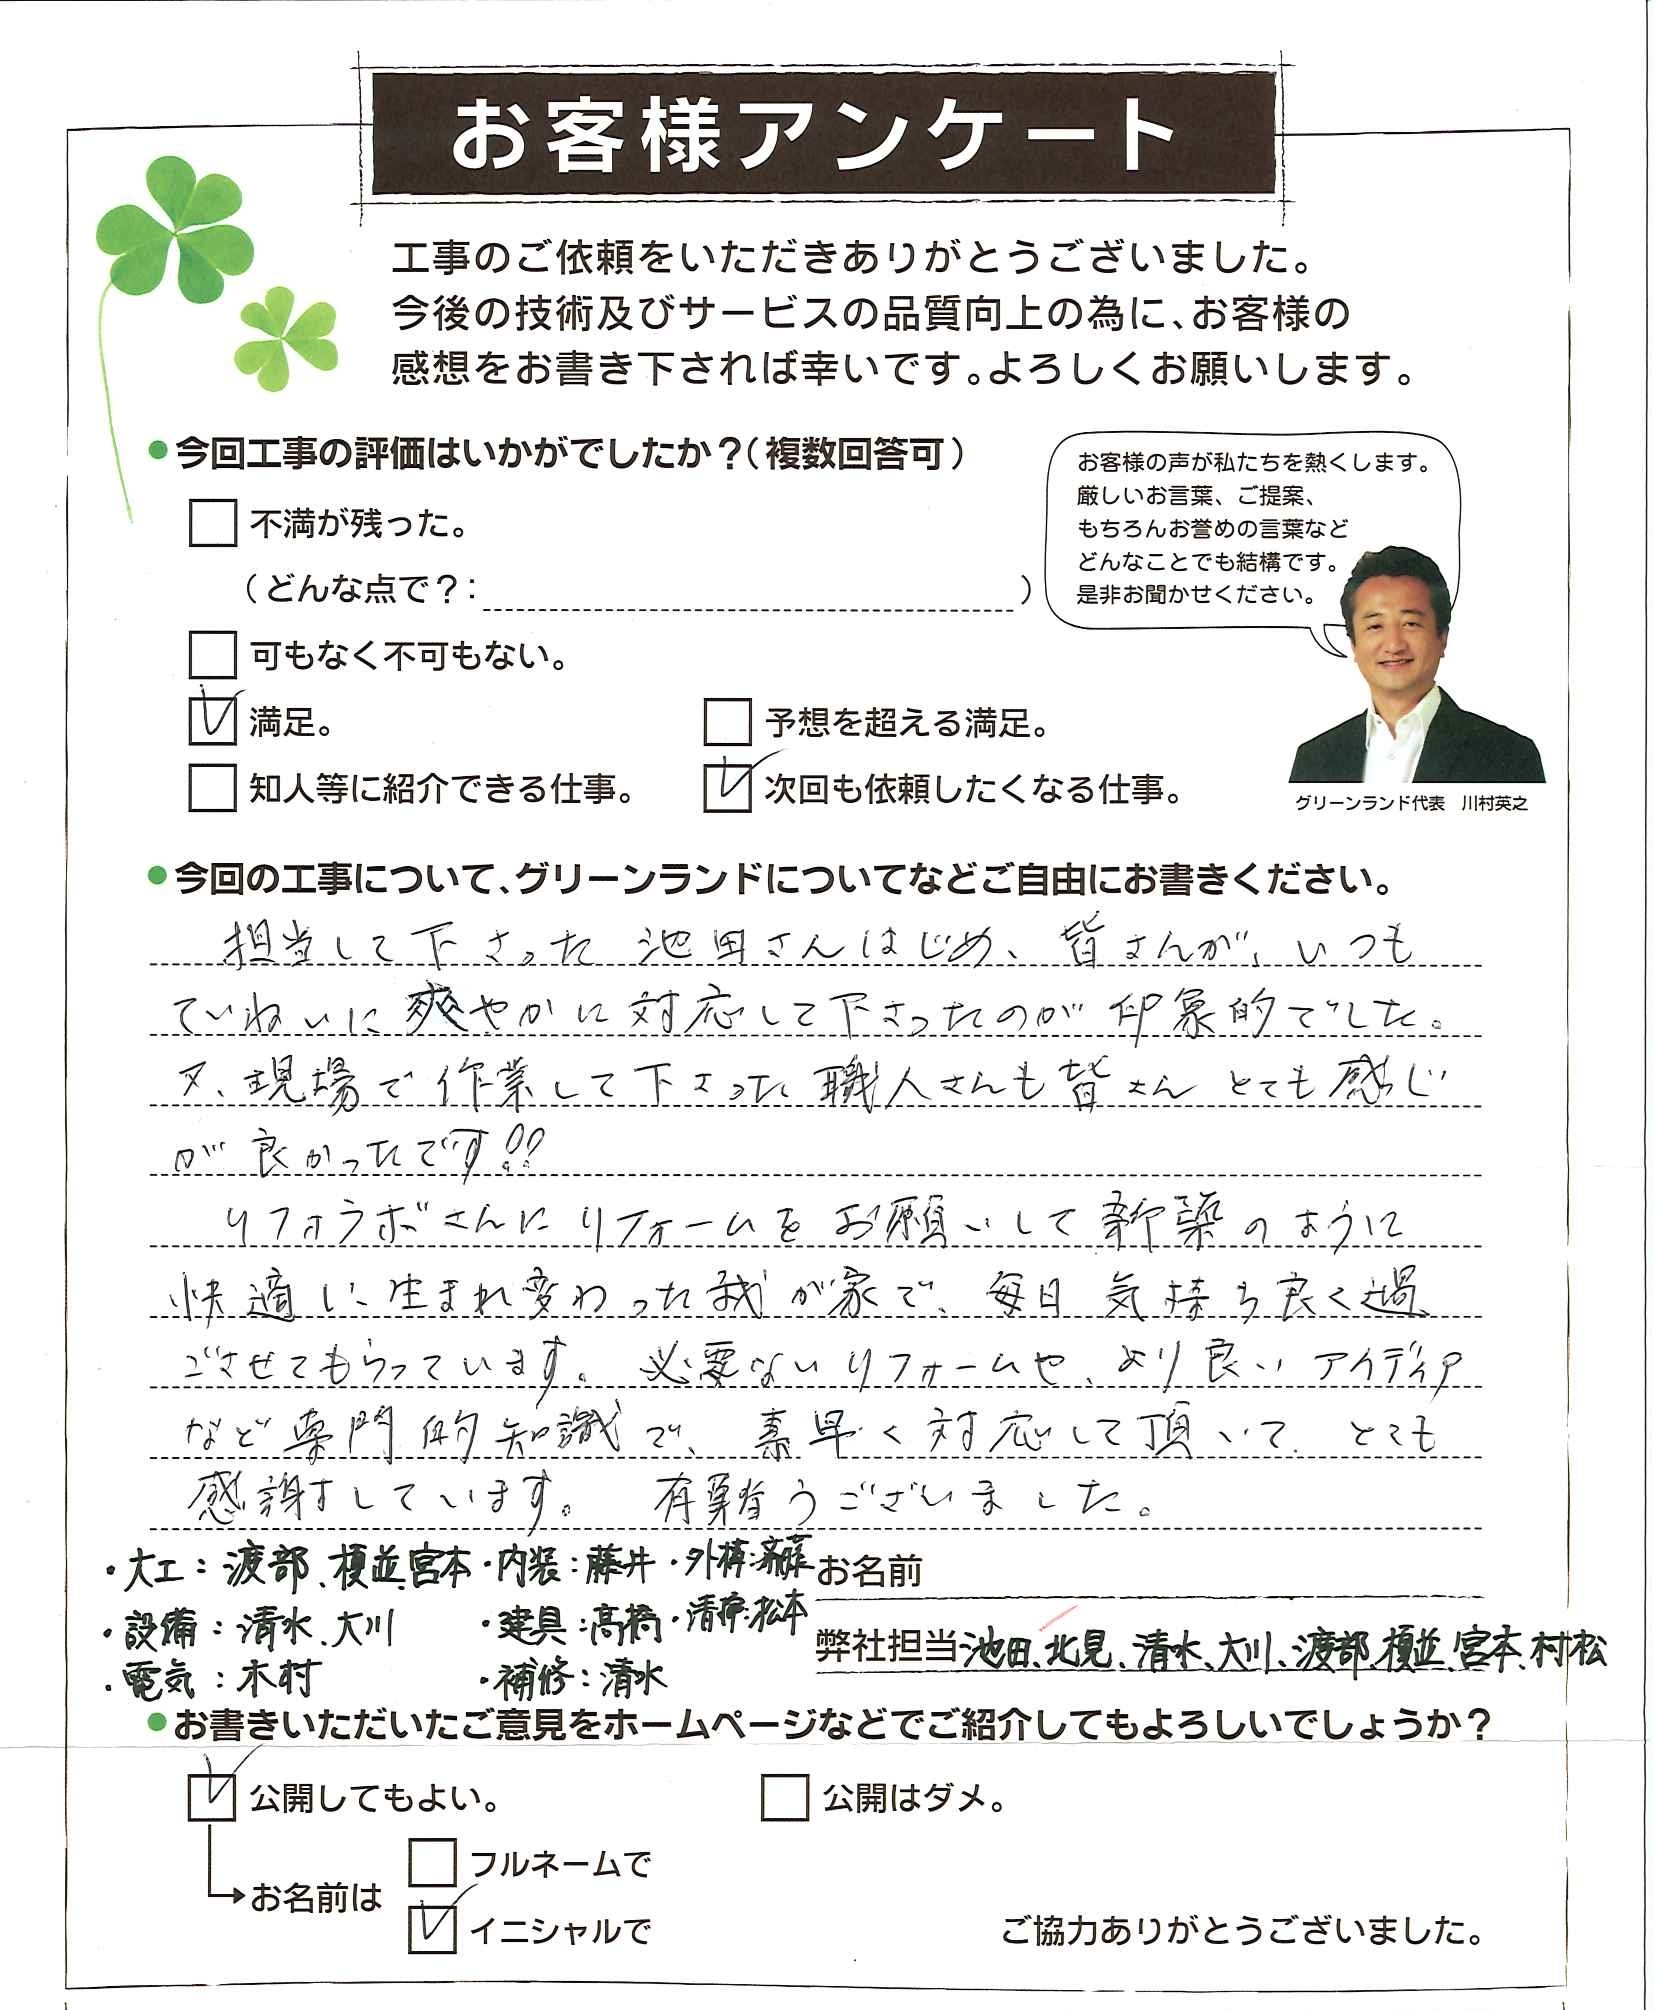 お客様アンケート
工事のご依頼をいただきありがとうございました。
今後の技術及びサービスの品質向上の為に、お客様の
感想をお書き下されば幸いです。よろしくお願いします。
●今回工事の評価はいかがでしたか？（複数回答可）
不満が残った。
（どんな点で？：　）
可もなく不可もない。
満足。
予想を超える満足。
知人等に紹介できる仕事。
次回も依頼したくなる仕事。
お客様の声が私たちを熱くします。
厳しいお言葉、ご提案、
もちろんお誉めの言葉など
どんなことでも結構です。
是非お聞かせください。
グリーンランド代表　川村英之
●今回の工事について、グリーンランドについてなどご自由にお書きください。
担当して下さった 池田さんはじめ、皆さんが、いつも
ていねいに爽やかに対応して下さったのが印象的でした。
又、現場で作業して下さった職人さんも皆さんとても感じ
が良かったです!!
リフォラボさんにリフォームをお願いして新築のように
快適に生まれ変わった我が家で、毎日気持ち良く過
ごさせてもらっています。必要ないリフォームや、より良いアイディア
など専門的知識で、素早く対応して頂いて、とても
感謝しています。有難うございました。
・大工：渡部、榎並、宮本・内装：藤井・外構：斎藤
・設備：清水、大川　・建具：高橋・清掃：松本
・電気：木村　・補修：清水
お名前
弊社担当 池田、北見、清水、大川、渡部、榎並、宮本、村松
●お書きいただいたご意見をホームページなどでご紹介してもよろしいでしょうか？
公開してもよい。
公開はダメ。
お名前は
フルネームで
イニシャルで
ご協力ありがとうございました。